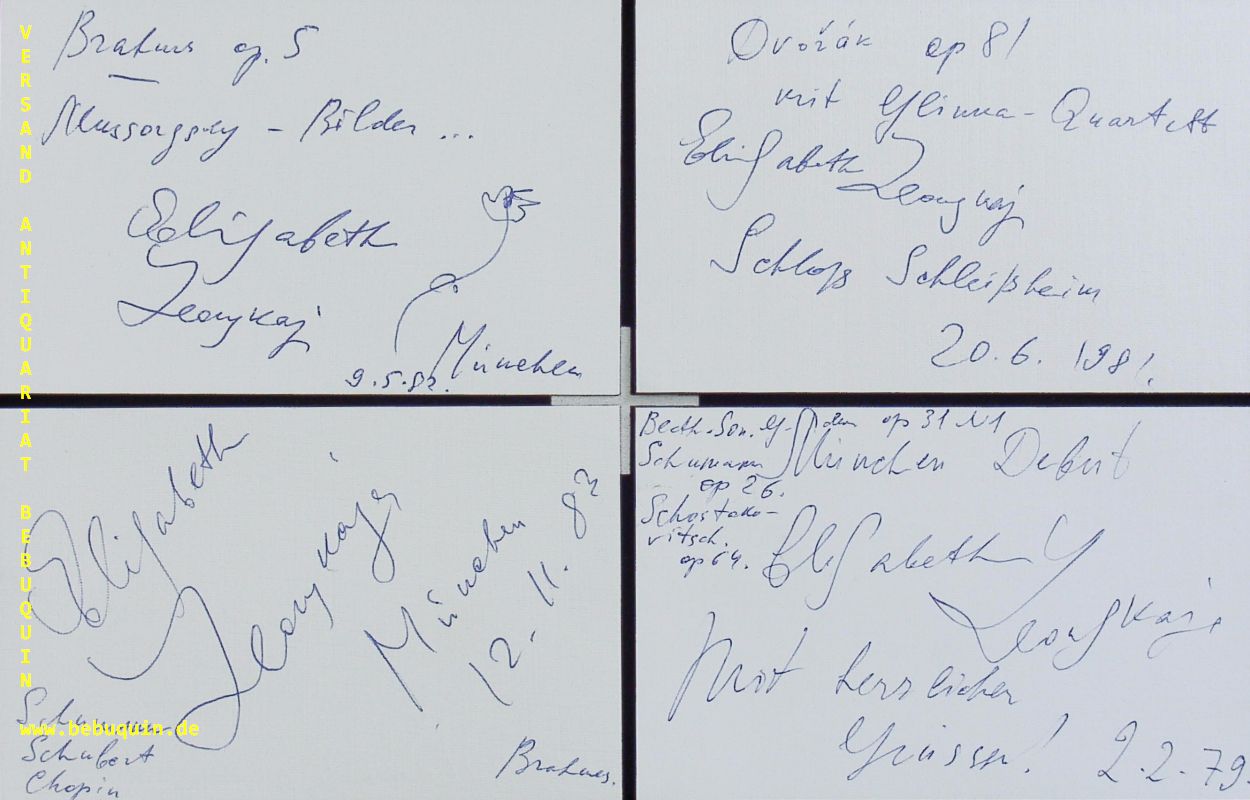 VERSAND ANTIQUARIAT BEBUQUIN
www.bebuquin.de
Brahms op. 5
Mussorgsky - Bilder ...
Elisabeth
Leonskaj
München
9.5.82.
Dvořák op 81
mit Glinka-Quartett
Elisabeth
Leonskaj
Schloß Schleißheim
20.6. 1981.
Elisabeth
Leonskaja
München
12. 11. 83
Schumann
Schubert
Chopin
Brahms.
Beeth. Son. G-dur op 31 N1
München Debut
Schumann
op 26.
Schostako-
vitsch.
op 64.
Elisabeth
Leonskaja
Mit herzlichen
Grüssen!
2.2.79.